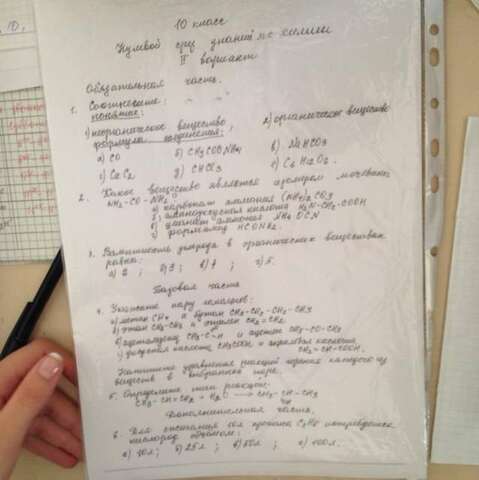 10 класс
Нулевой срез знаний по химии
II вариант
Обязательная часть.
1. Соотнесите:
понятие:
1) неорганическое вещество 2) органическое вещество
формула соединения:
а) CO б) CH3COONH4 в) NaHCO3
г) CaC2 д) CHCl3 е) C6H12O2.
2. Какое вещество является изомером мочевины
NH2-CO-NH2
а) карбонат аммония (NH4)2CO3
б) аминоуксусная кислота H2N-CH2-COOH
в) цианат аммония NH4OCN
г) формамид HCONH2.
3. Валентность углерода в органических веществах
равна:
а) 2; б) 3; в) 4; г) 5.
Базовая часть
4. Укажите пару гомологов:
а) метан CH4 и бутан CH3-CH2-CH2-CH3
б) этан CH3-CH3 и этилен CH2=CH2
в) ацетальдегид и ацетон CH3-CO-CH3
г) уксусная кислота CH3COOH и акриловая кислота
CH2=CH-COOH.
Напишите уравнения реакций горения каждого из
веществ в выбранной паре.
5. Определите тип реакции:
CH3-CH=CH2 + H2O → CH3-CH-CH3
OH
Дополнительная часть.
6. Для сжигания 10л пропана C3H8 потребовался
кислород объемом:
а) 10л; б) 25л; в) 50л; г) 100л.